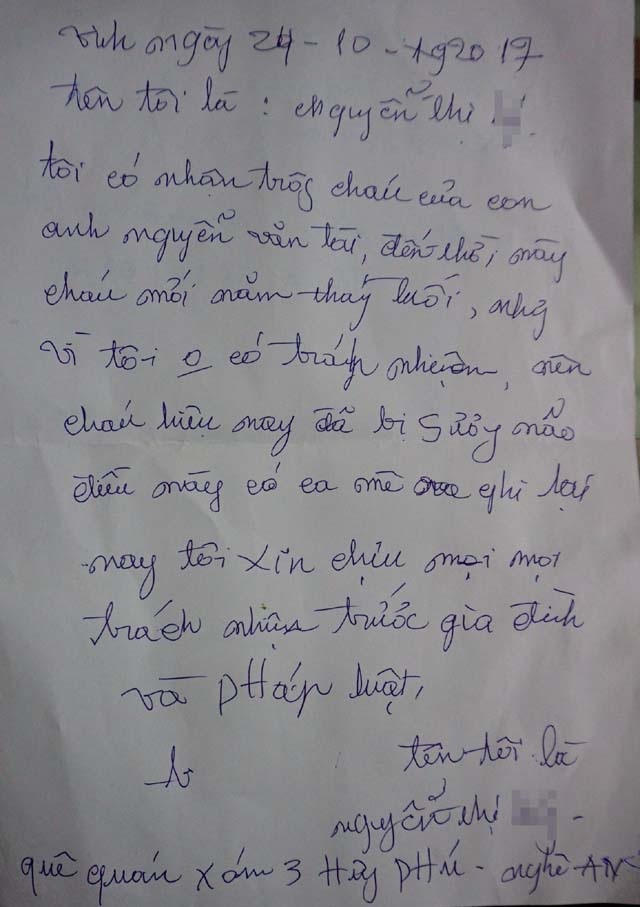 Vinh ngày 24-10-2017
tên tôi là : Nguyễn thị
tôi có nhận trôg cháu của con
anh nguyễn văn tài, đến thời này
cháu mới năm tháy tuối, nhg
vì tôi o có trách nhiệm, nên
cháu hiệu nay đã bị sưởy não
điều này có ca mê ghi lại
nay tôi xin chịu mọi mọi
trách nhiệm trước gia đình
và pháp luật,
tên tôi là
nguyễn thị
quê quán xóm 3 Hãy PHú - nghê-AN